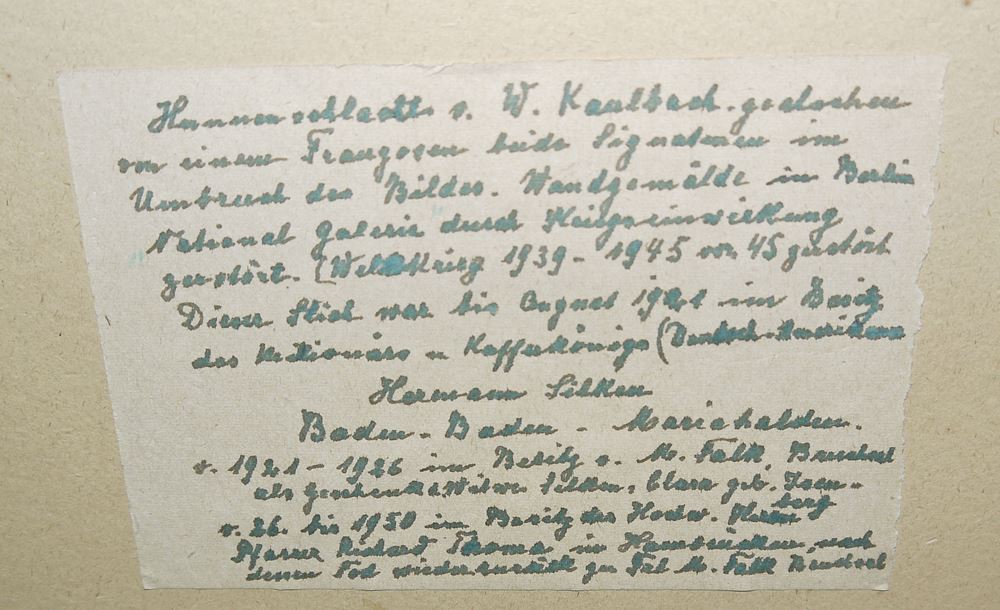 Hunnenschlacht v. W. Kaulbach. gestochen
von einem Franzosen beide Signaturen im
Umbruch des Bildes. Wandgemälde in Berlin
National Galerie durch Kriegseinwirkung
zerstört. (Weltkrieg 1939 - 1945 vor 45 zerstört
Dieser Stich war bis August 1921 im Besitz
des Millionärs u Kaffeekönigs (Deutsch-Amerikaner
Hermann Silken
Baden - Baden - Mariahalden.
v. 1921 - 1926 im Besitz v. M. Falk, Bruchsal
als Geschenk d. Witwe Silken, Clara geb. Isen-
berg
v. 26. bis 1950 im Besitz des Hochw. Herrn
Pfarrer Richard Thoma in Hambrücken, nach
dessen Tod wieder zurück zu Frl M. Falk Bruchsal